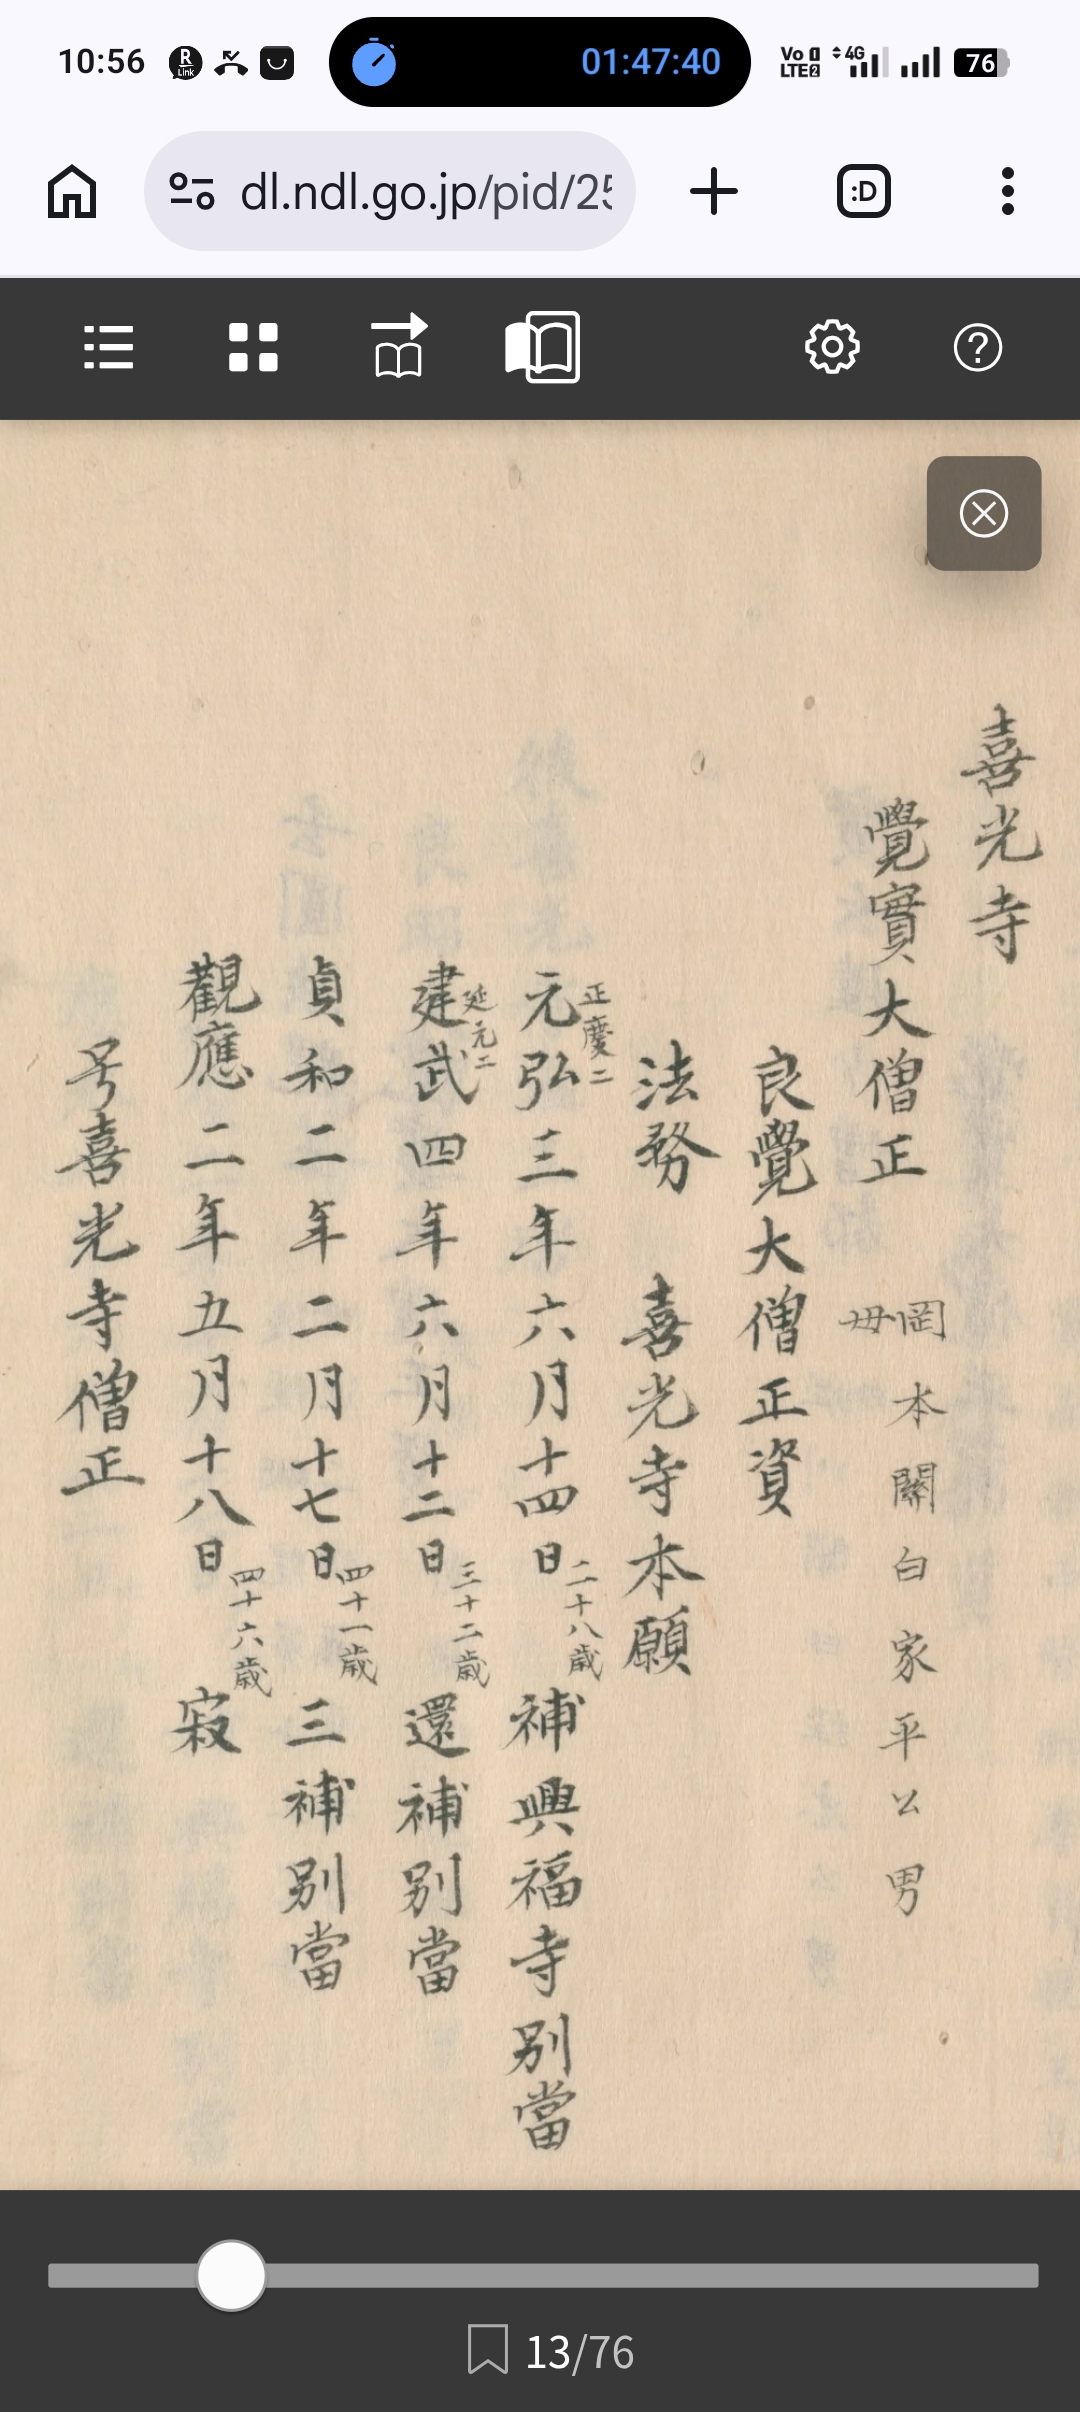 10:56
R
Link
01:47:40
Vo
LTE2
4G
76
dl.ndl.go.jp/pid/25
:D
喜光寺
覺實大僧正
岡本關白家平公男
母
良覺大僧正資
法務 喜光寺本願
正慶二
元弘三年六月十四日 二十八歳 補興福寺別當
延元二
建武四年六月十二日 三十二歳 還補別當
貞和二年二月十七日 四十一歳 三補別當
觀應二年五月十八日 四十六歳 寂
号喜光寺僧正
13/76